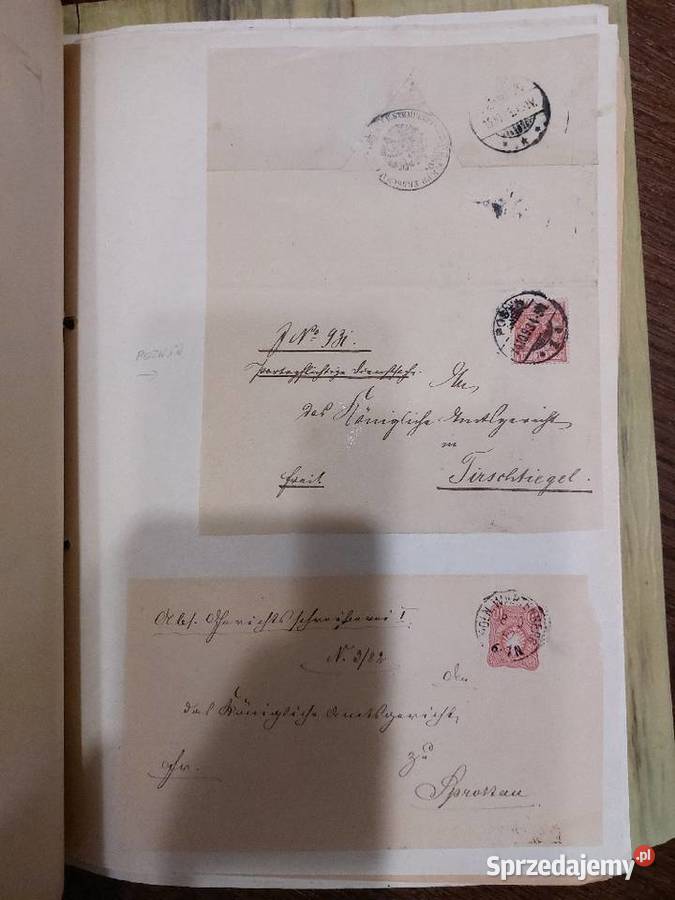 POZNAŃ
J No 931.
Portopflichtige Dienstsache.
An
das Königliche Amtsgericht
in
Tirschtiegel.
frei
Abs. Gerichtsschreiberei I
N. 3/82
An
das Königliche Amtsgericht
zu
Sprottau
Sprzedajemy.pl